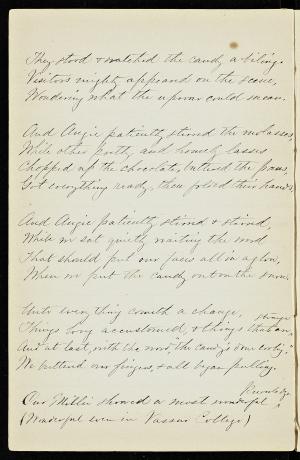 They stood & watched the candy a-biling.
Visitors nightly appeared on the scene,
Wondering what the uproar could mean.
And Angie patiently stirred the molasses,
While other pretty and homely lasses
Chopped up the chocolate, buttered the pans,
Got everything ready, then folded their hands.
And Angie patiently stirred & stirred,
While we sat quietly waiting the word
That should put our faces all in a glow,
When we put the candy out on the snow.
Unto everything cometh a change,
Things long accustomed, & things that are strange
And at last, with the word, "the candy is done, girls,"
We buttered our fingers, & all began pulling.
Our Millie showed a most wonderful knowledge
(Wonderful even in Vassar College)